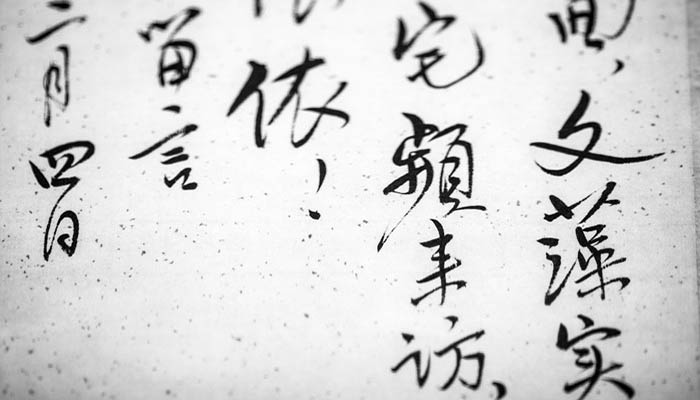 、文藻实
宅頻来访、
依！
留言
二月四日